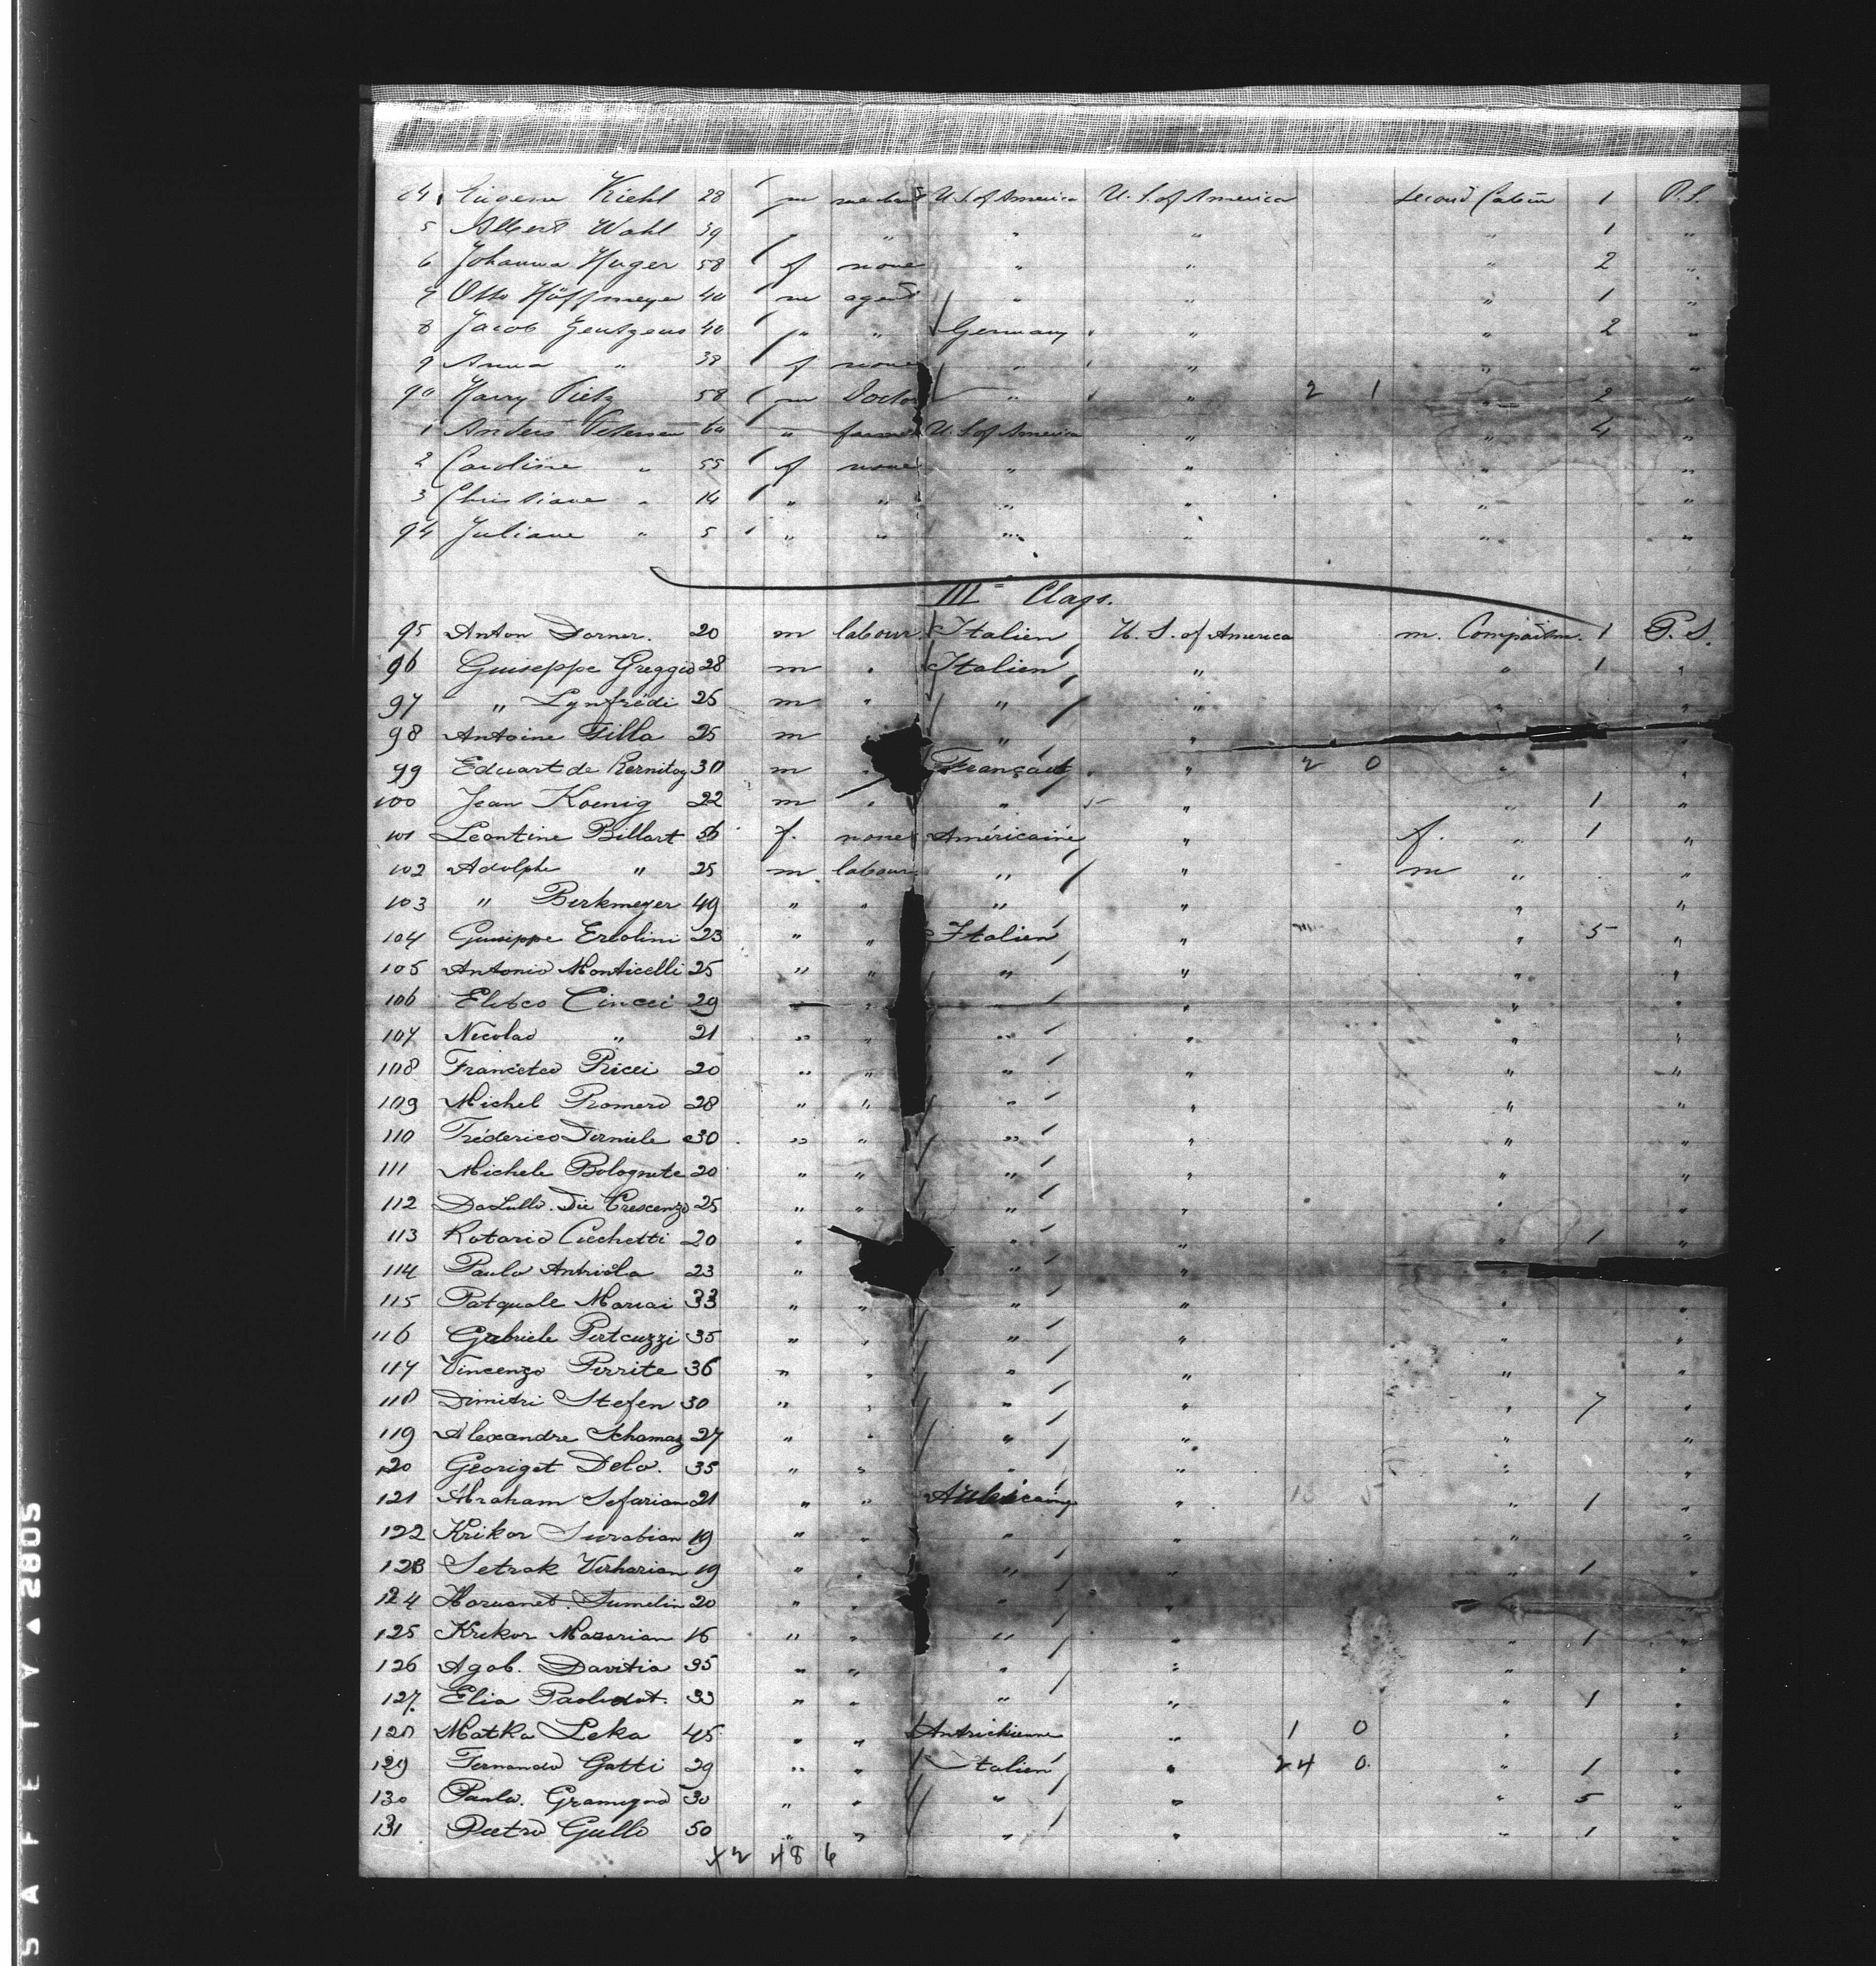 84 Eugene Kiehl 28 m U.S. of America U.S. of America Second Cabin 1 P.S.
5 Albert Wahl 39 " " " " " 1 "
6 Johanna Huger 58 f none " " " 2 "
7 Otto Höffmeyer 40 m agent " " " 1 "
8 Jacob 40 " " Germany " " 2 "
9 Anna " 38 f none " " " "
90 Harry Tietz 58 m Doctor " " 2 1 " 2 "
1 Anders Petersen 60 " farmer U.S. of America " " 4 "
2 Caroline " 55 f none " " " "
3 Christiane " 14 " " " " " "
94 Juliane " 5 " " " " " "
III Class.
95 Anton Dorner. 20 m labour. Italien U. S. of America m. Compartm. 1 P. S.
96 Guiseppe Greggio 28 m " Italien " " 1 "
97 " Lynfrédi 25 m " " " " "
98 Antoine Filla 25 m " " "
99 Eduart de Kernitoy 30 m " Français " 2 0 " "
100 Jean Koenig 22 m " " " " 1 "
101 Léontine Billart 36 f. none Américaine " f. " 1 "
102 Adolphe " 25 m labour. " " m " "
103 " Berkmeyer 49 " " " " " "
104 Guiseppe Ercolini 23 " " Italien " " 5 "
105 Antonio Monticelli 25 " " " " " "
106 Cincci 29 " " " " "
107 Nicolao " 21 " " " " " "
108 Francisco Ricci 20 " " " " " "
109 Michel Romero 28 " " " " " "
110 Fréderico Derniele 30 " " " " " "
111 Michele Bolognete 20 " " " " " "
112 Die Crescenzo 25 " " " " " "
113 Rotario Cicchetti 20 " " " " 1 "
114 Paulo Antriola 23 " " " "
115 Pasquale Marcai 33 " " " " " "
116 Gabriele Pertcuzzi 35 " " " " " "
117 Vincenzo Perrite 36 " " " " " "
118 Dimitri Stefen 30 " " " " " 7 "
119 Alexandre Schamaz 27 " " " " " "
120 Georiget Delo. 35 " " " " " "
121 Abraham Sefarian 21 " " " " 1 "
122 Krikor Surabian 19 " " " " " "
123 Setrak Verharian 19 " " " " " 1 "
124 Haruanet. Tumelin 20 " " " " " "
125 Krikor Mazarian 16 " " " " " 1 "
126 Agob. Davitia 35 " " " " " "
127. Elia 33 " " " " " 1 "
128 Matka Leka 45 " " Autrichienne " 1 0 " "
129 Fernando Gatti 29 " " Italien " 24 0. " 1 "
130 Paulo. Gramegna 30 " " " " " 5 "
131 Pietro Gullo 50 " " " " " 1 "
42 48 6
SAFETY ▲ 2805